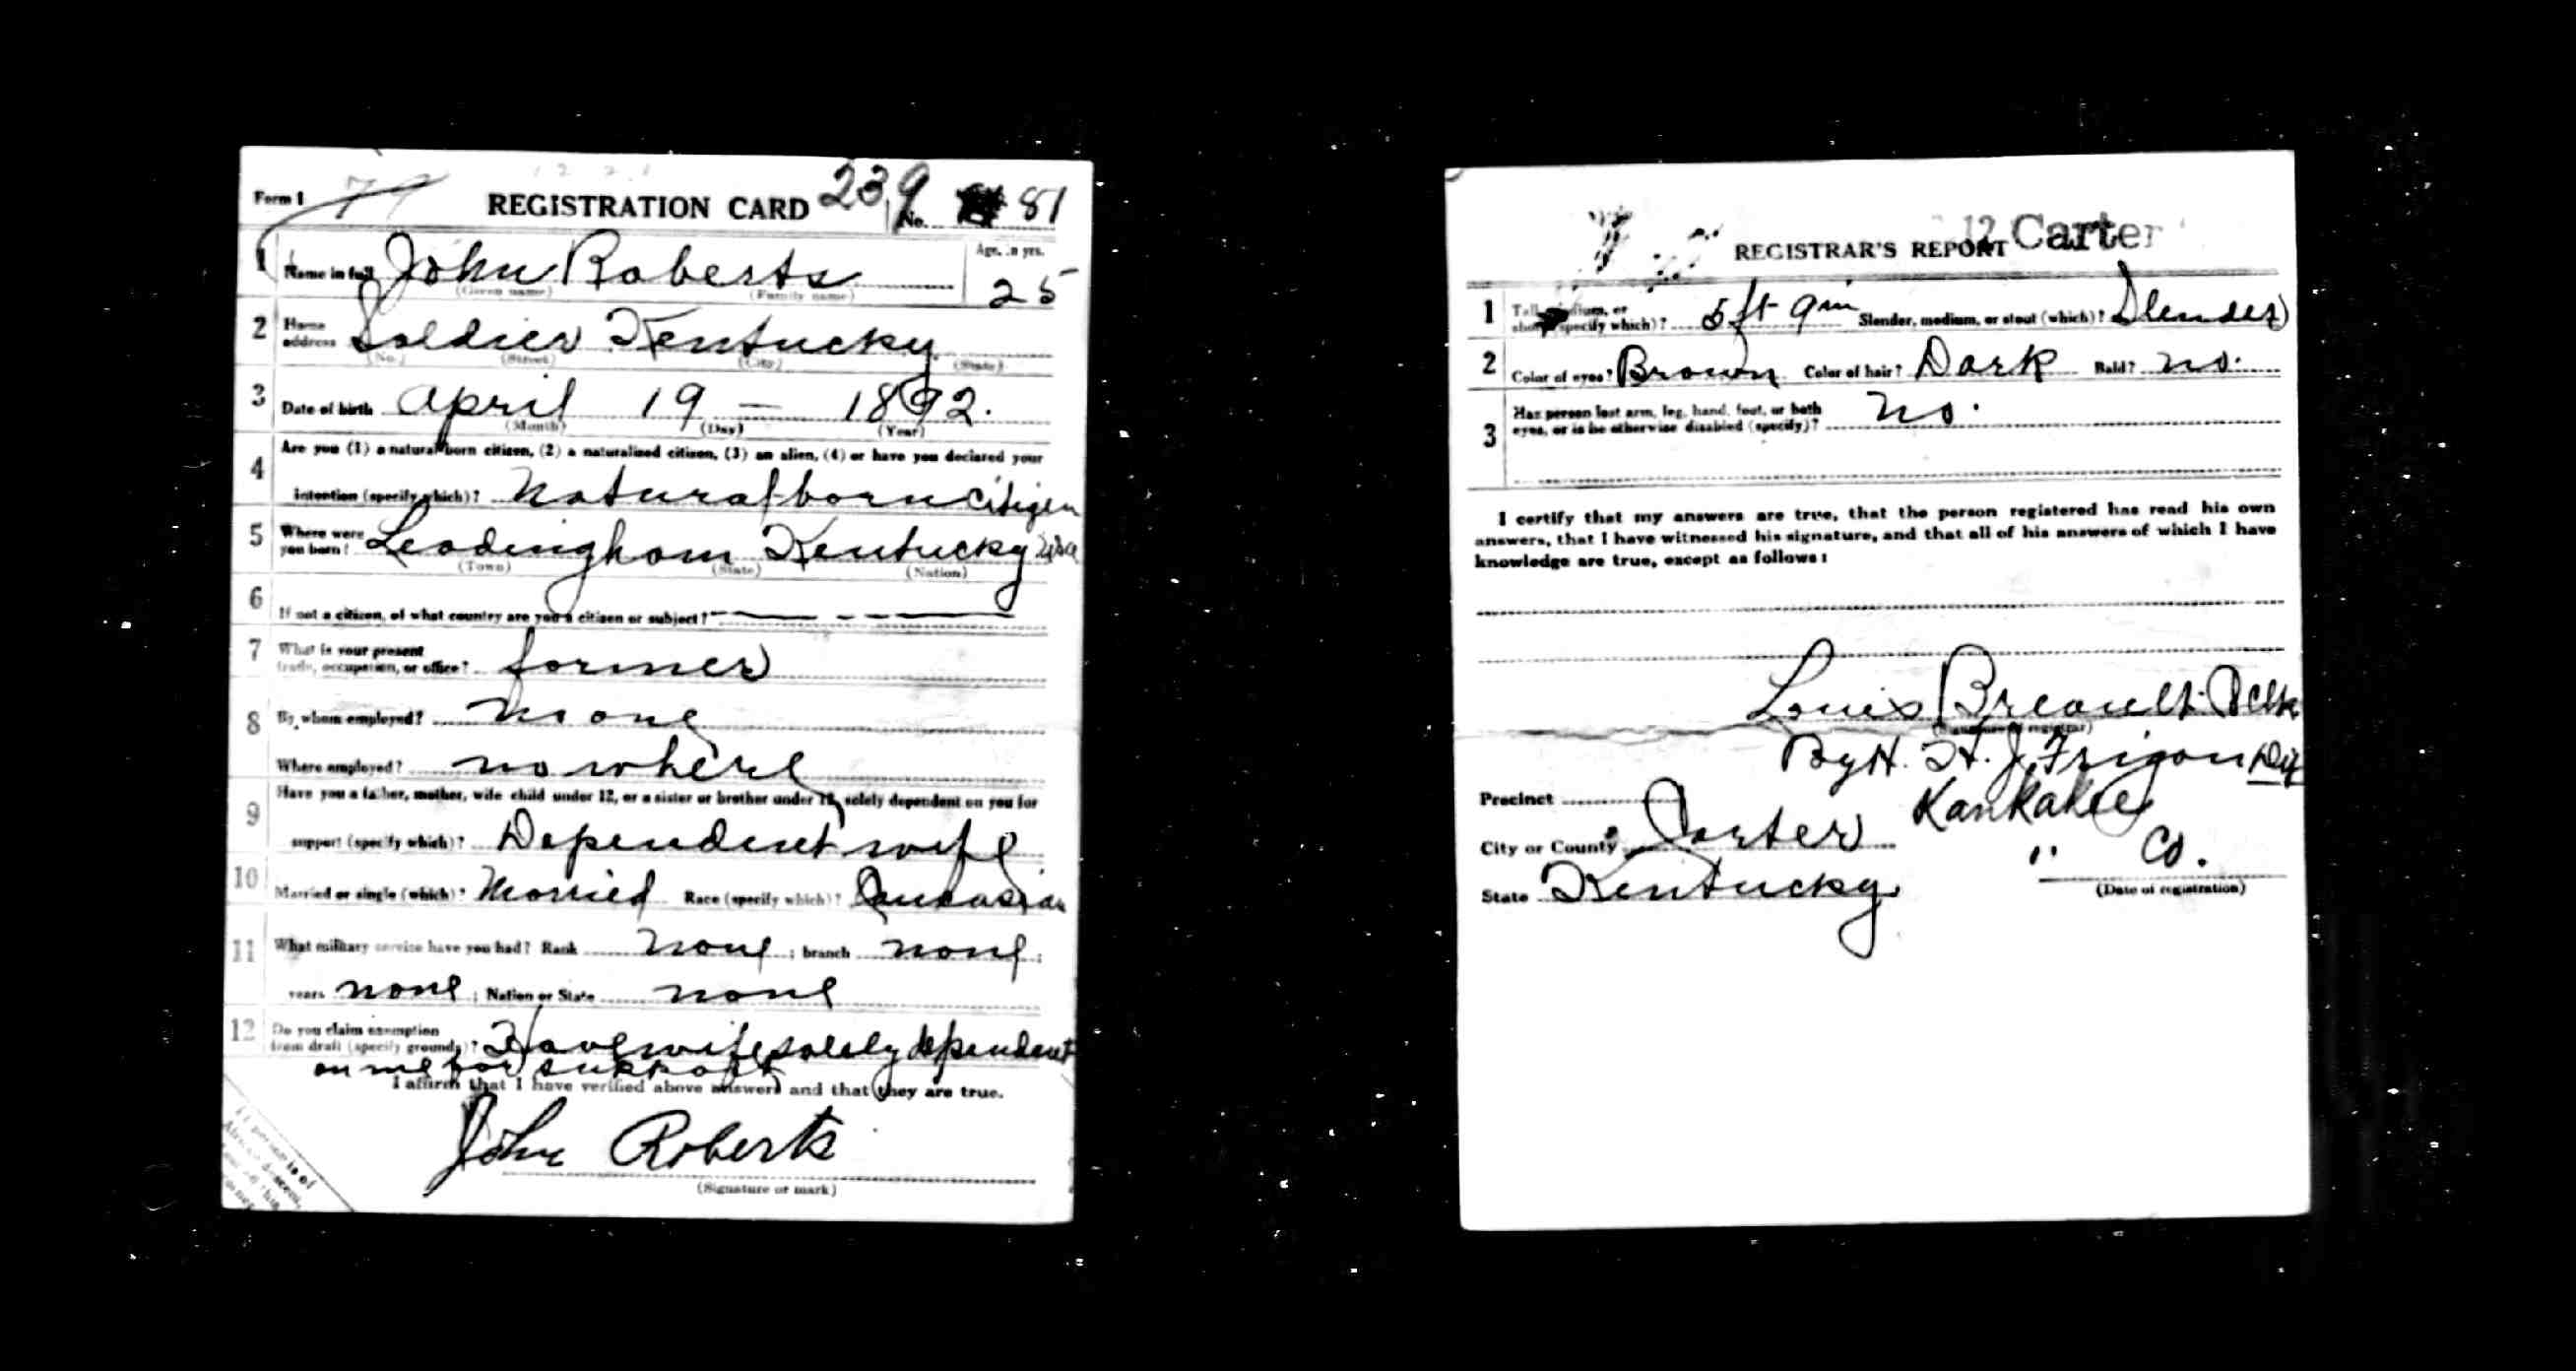 Form 1 REGISTRATION CARD 239 No. 81
1 Name in full John Roberts Age, in yrs. 25
(Given name) (Family name)
2 Home address Soldier Kentucky
(No.) (Street) (City) (State)
3 Date of birth April 19 — 1892.
(Month) (Day) (Year)
4 Are you (1) a natural born citizen, (2) a naturalized citizen, (3) an alien, (4) or have you declared your
intention (specify which)? Natural born citizen
5 Where were you born? Leadingham Kentucky USA
(Town) (State) (Nation)
6 If not a citizen, of what country are you a citizen or subject? — - —
7 What is your present trade, occupation, or office? farmer
8 By whom employed? None
Where employed? nowhere
9 Have you a father, mother, wife child under 12, or a sister or brother under 12, solely dependent on you for
support (specify which)? Dependent wife
10 Married or single (which)? Married Race (specify which)? Caucasian
11 What military service have you had? Rank none ; branch none ;
years none ; Nation or State none
12 Do you claim exemption from draft (specify grounds)? Have wife solely dependent
on me for support
I affirm that I have verified above answers and that they are true.
John Roberts
(Signature or mark)
12 Carter
REGISTRAR'S REPORT
1 Tall, medium, or short (specify which)? 5 ft 9 in Slender, medium, or stout (which)? Slender
2 Color of eyes? Brown Color of hair? Dark Bald? no.
3 Has person lost arm, leg, hand, foot, or both eyes, or is he otherwise disabled (specify)? no.
I certify that my answers are true, that the person registered has read his own
answers, that I have witnessed his signature, and that all of his answers of which I have
knowledge are true, except as follows:
Louis Breault
(Signature of registrar)
By H. H. J. Frigon
Precinct Kankakee
City or County Carter " Co.
State Kentucky (Date of registration)